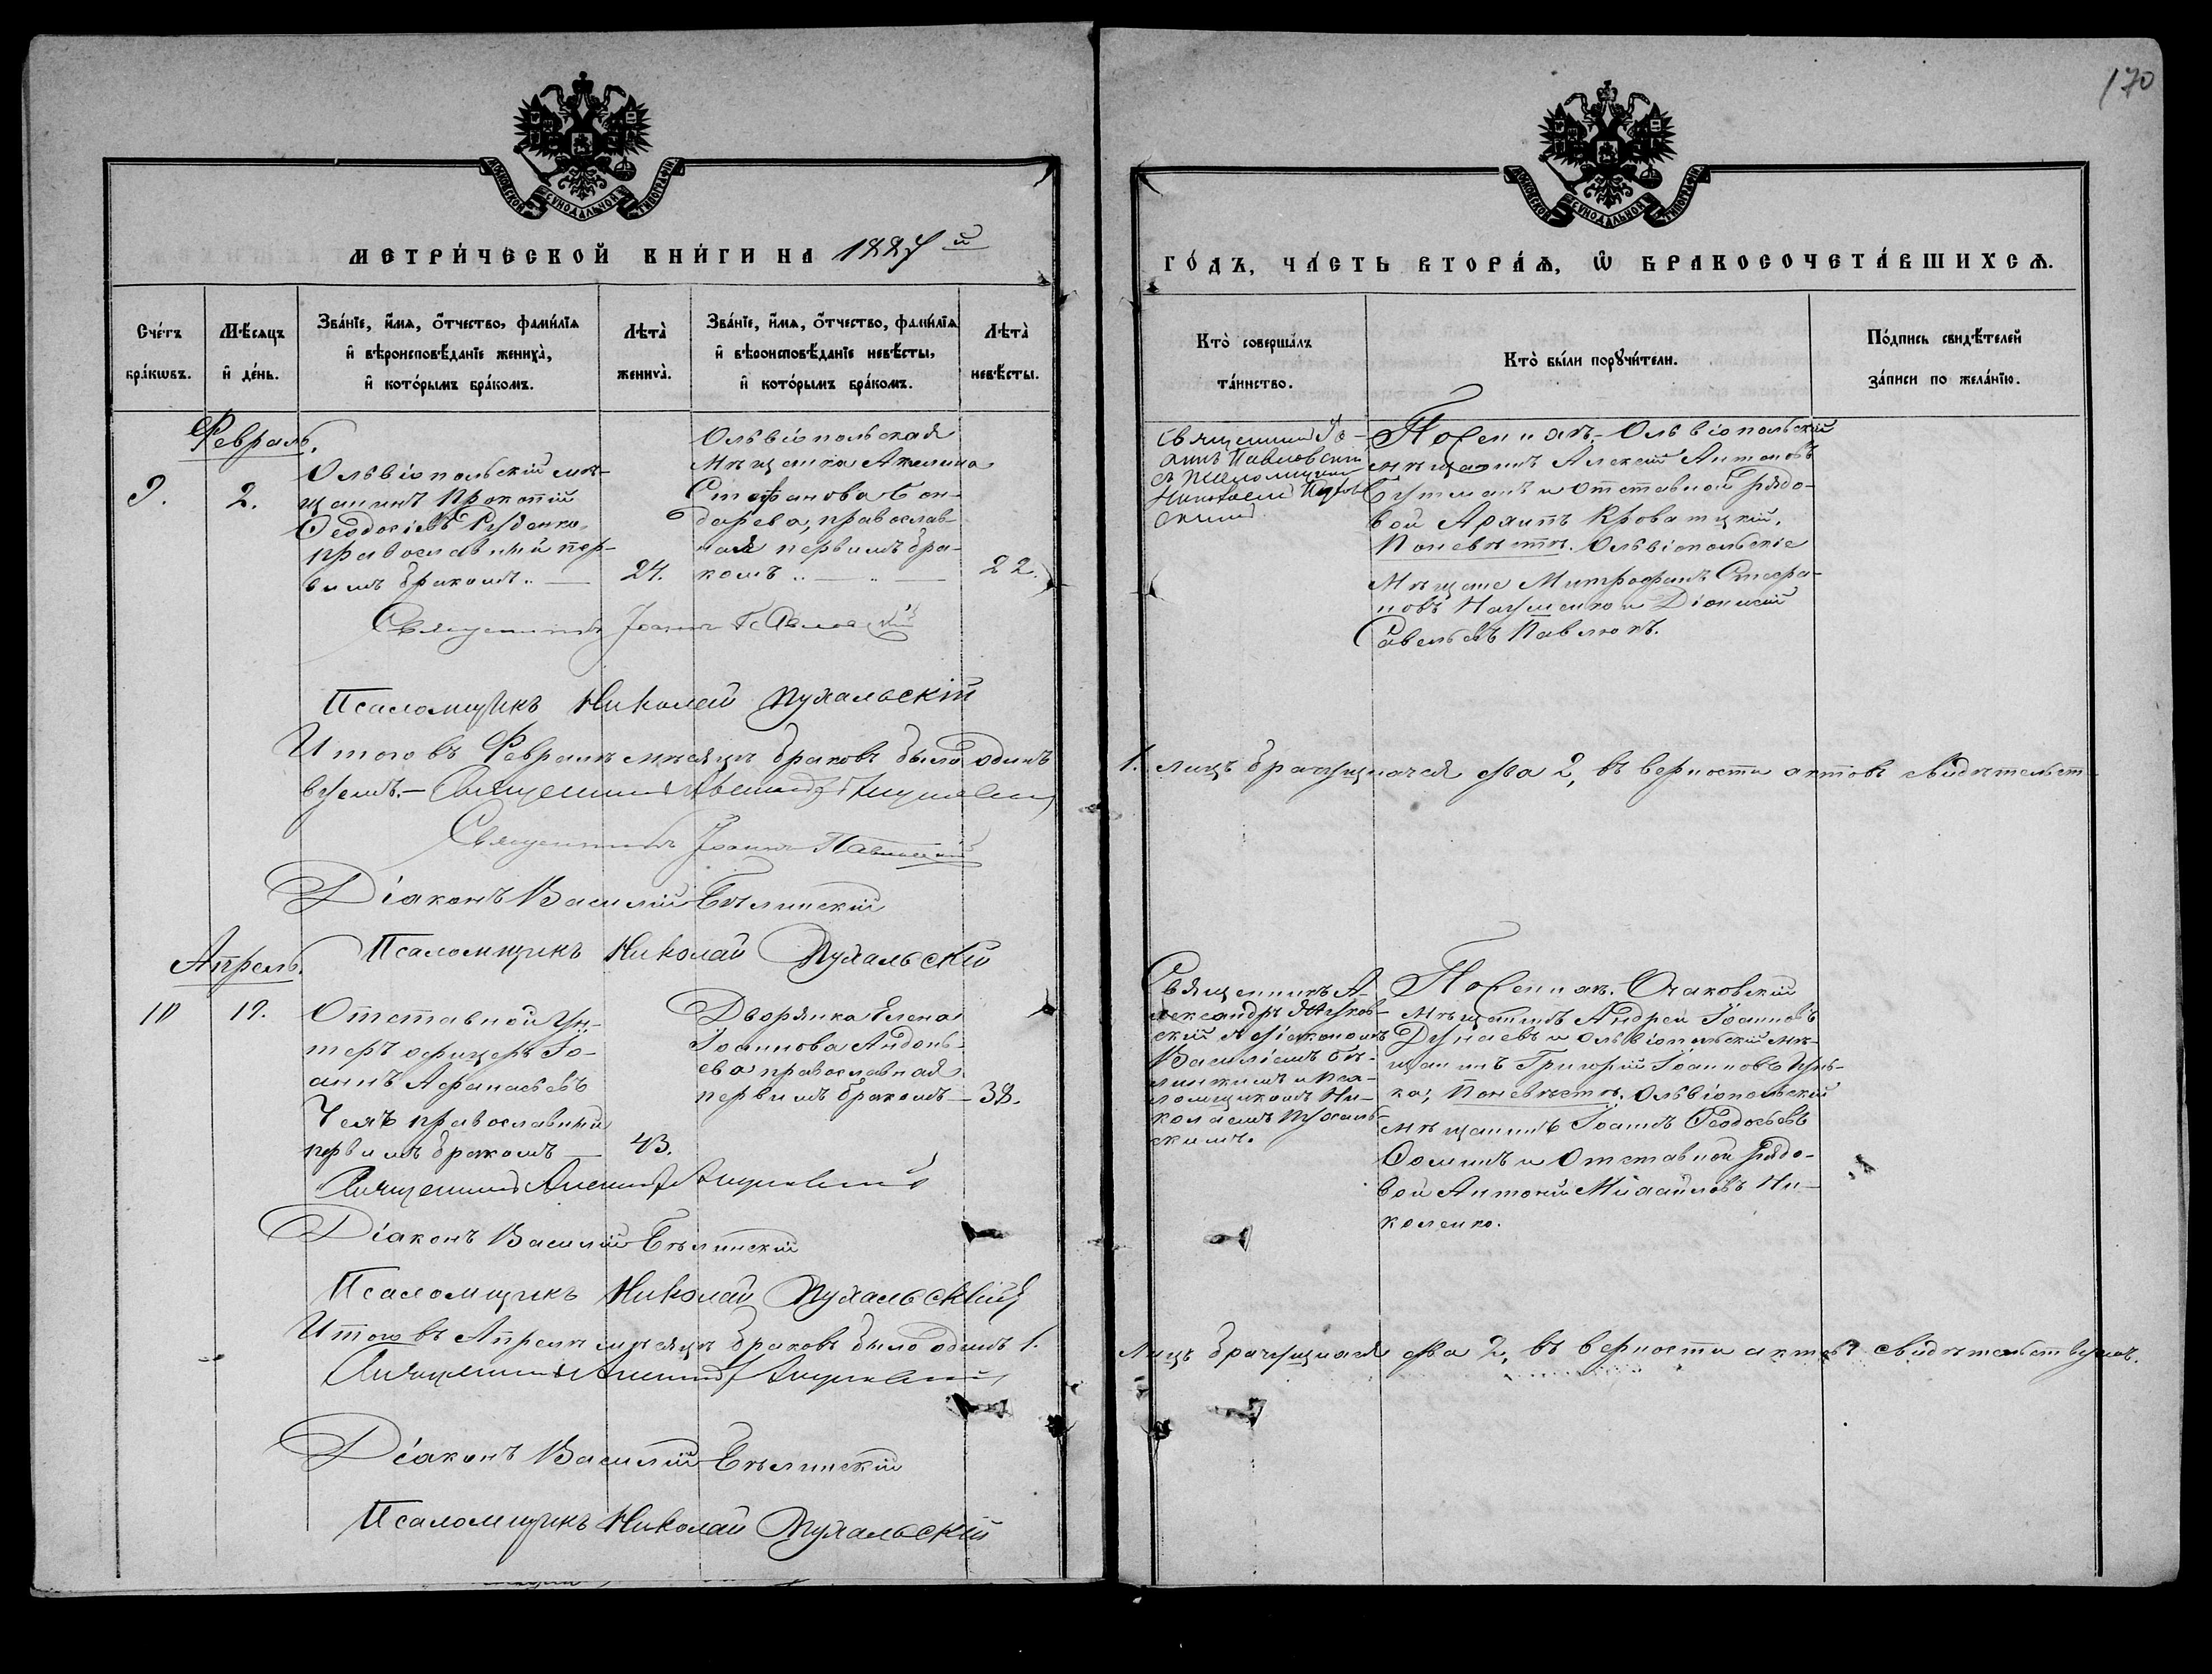 170
МОСКОВСКОЙ СѴНОДАЛЬНОЙ ТИПОГРАФІИ
МОСКОВСКОЙ СѴНОДАЛЬНОЙ ТИПОГРАФІИ
МЕТРИ́ЧЕСКОЙ КНИ́ГИ НА 1887 й
ГО́ДЪ, ЧА́СТЬ ВТОРА́Ѧ, Ѽ БРАКОСОЧЕТА́ВШИХСѦ.
Сче́тъ бра́кѡвъ.
Мѣ́сяцъ и҆ де́нь.
Зва́нїе, и҆́мѧ, ѻ҆́тчество, фамилїѧ и҆ вѣроисповѣ́данїе жениха̀, и҆ кото́рымъ бра́комъ.
Лѣта̀ жениха̀.
Зва́нїе, и҆́мѧ, ѻ҆́тчество, фамилїѧ и҆ вѣроисповѣ́данїе невѣ́сты, и҆ кото́рымъ бра́комъ.
Лѣта̀ невѣ́сты.
Кто̀ соверша́лъ та́инство.
Кто̀ бы́ли порꙋчи́тели.
По́дпись свидѣ́телей за́писи по жела́нїю.
Февраль.
9.
2.
Ольвіопольскій мѣ-
щанинъ Прокопій
Ѳеодосіевъ Руденко,
православный пер-
вымъ бракомъ.. —
24.
Ольвіопольская
Мѣщанка Акилина
Стефанова Бон-
дарева, православ-
ная первымъ бра-
комъ .. —
22.
Священникъ Іо-
аннъ Павловскій
съ Псаломщикомъ
Николаемъ
По женихѣ. Ольвіопольскій
мѣщанинъ Алексій Антоновъ
и Отставной рядо-
вой Архипъ
По невѣстѣ. Ольвіопольскіе
Мѣщане Митрофанъ Стефа-
новъ Науменко и Діонисій
Савельевъ Павлюкъ.
Священникъ Іоаннъ Павловскій
Псаломщикъ Николай Пухальскій
Итого въ Февралѣ мѣсяцѣ браковъ было одинъ
1. лицъ брачущихся два 2, въ верности актовъ свидѣтельст-
вуемъ. — Священникъ Александръ
Священникъ Іоаннъ Павловскій
Діаконъ Василій Бѣлинскій
Псаломщикъ Николай Пухальскій
Апрель.
10
19.
Отставной Ун-
теръ офицеръ Іо-
аннъ Афанасьевъ
православный
первымъ бракомъ —
43.
Дворянка Елена
Іоаннова Андонь-
ева православная
первымъ бракомъ —
38.
Священникъ А-
лександръ
скій съ діакономъ
Василіемъ Бѣ-
линскимъ и Пса-
ломщикомъ Ни-
колаемъ Пухаль-
скимъ.
По женихѣ. Очаковскій
Мѣщанинъ Андрей Іоанновъ
Дунаевъ и Ольвіопольскій мѣ-
щанинъ Григорій Іоанновъ
По невѣстѣ. Ольвіопольскій
мѣщанинъ Іоаннъ Ѳеодосьевъ
Ѳоминъ и Отставной рядо-
вой Антоній Михаиловъ Ни-
коленко.
Священникъ Александръ
Діаконъ Василій Бѣлинскій
Псаломщикъ Николай Пухальскій
Итого въ Апрелѣ мѣсяцѣ браковъ было одинъ 1.
Лицъ брачущихся два 2, въ верности актовъ свидѣтельствуемъ.
Священникъ Александръ
Діаконъ Василій Бѣлинскій
Псаломщикъ Николай Пухальскій